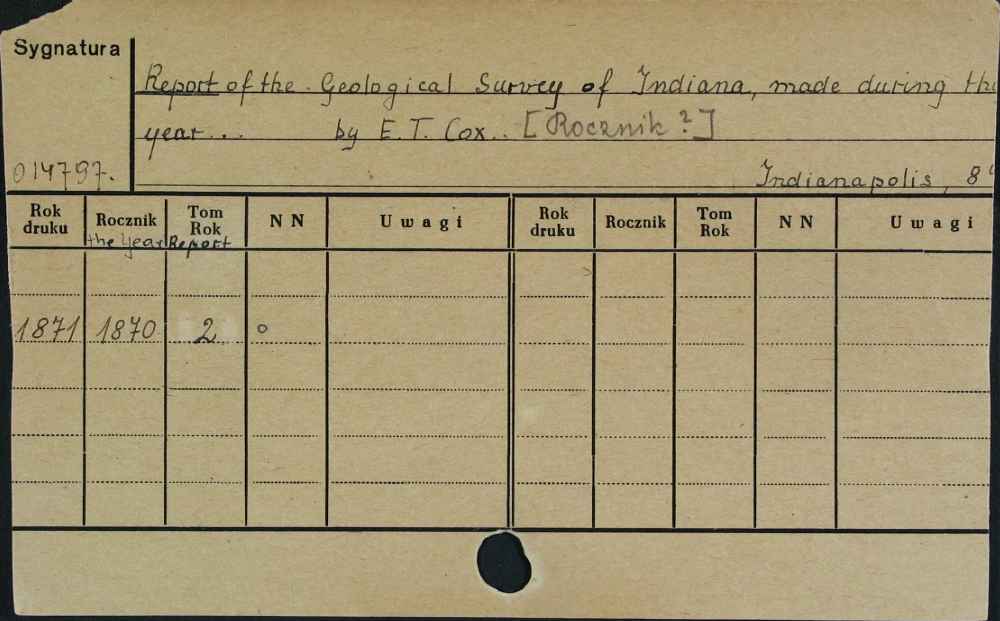 Sygnatura
Report of the Geological Survey of Indiana, made during the
year... by E. T. Cox.. [Rocznik?]
014797.
Indianapolis, 8°
Rok druku Rocznik Tom Rok NN Uwagi Rok druku Rocznik Tom Rok NN Uwagi
the Year Report
1871 1870 2 o